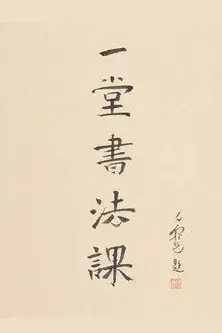 一堂書法課
題